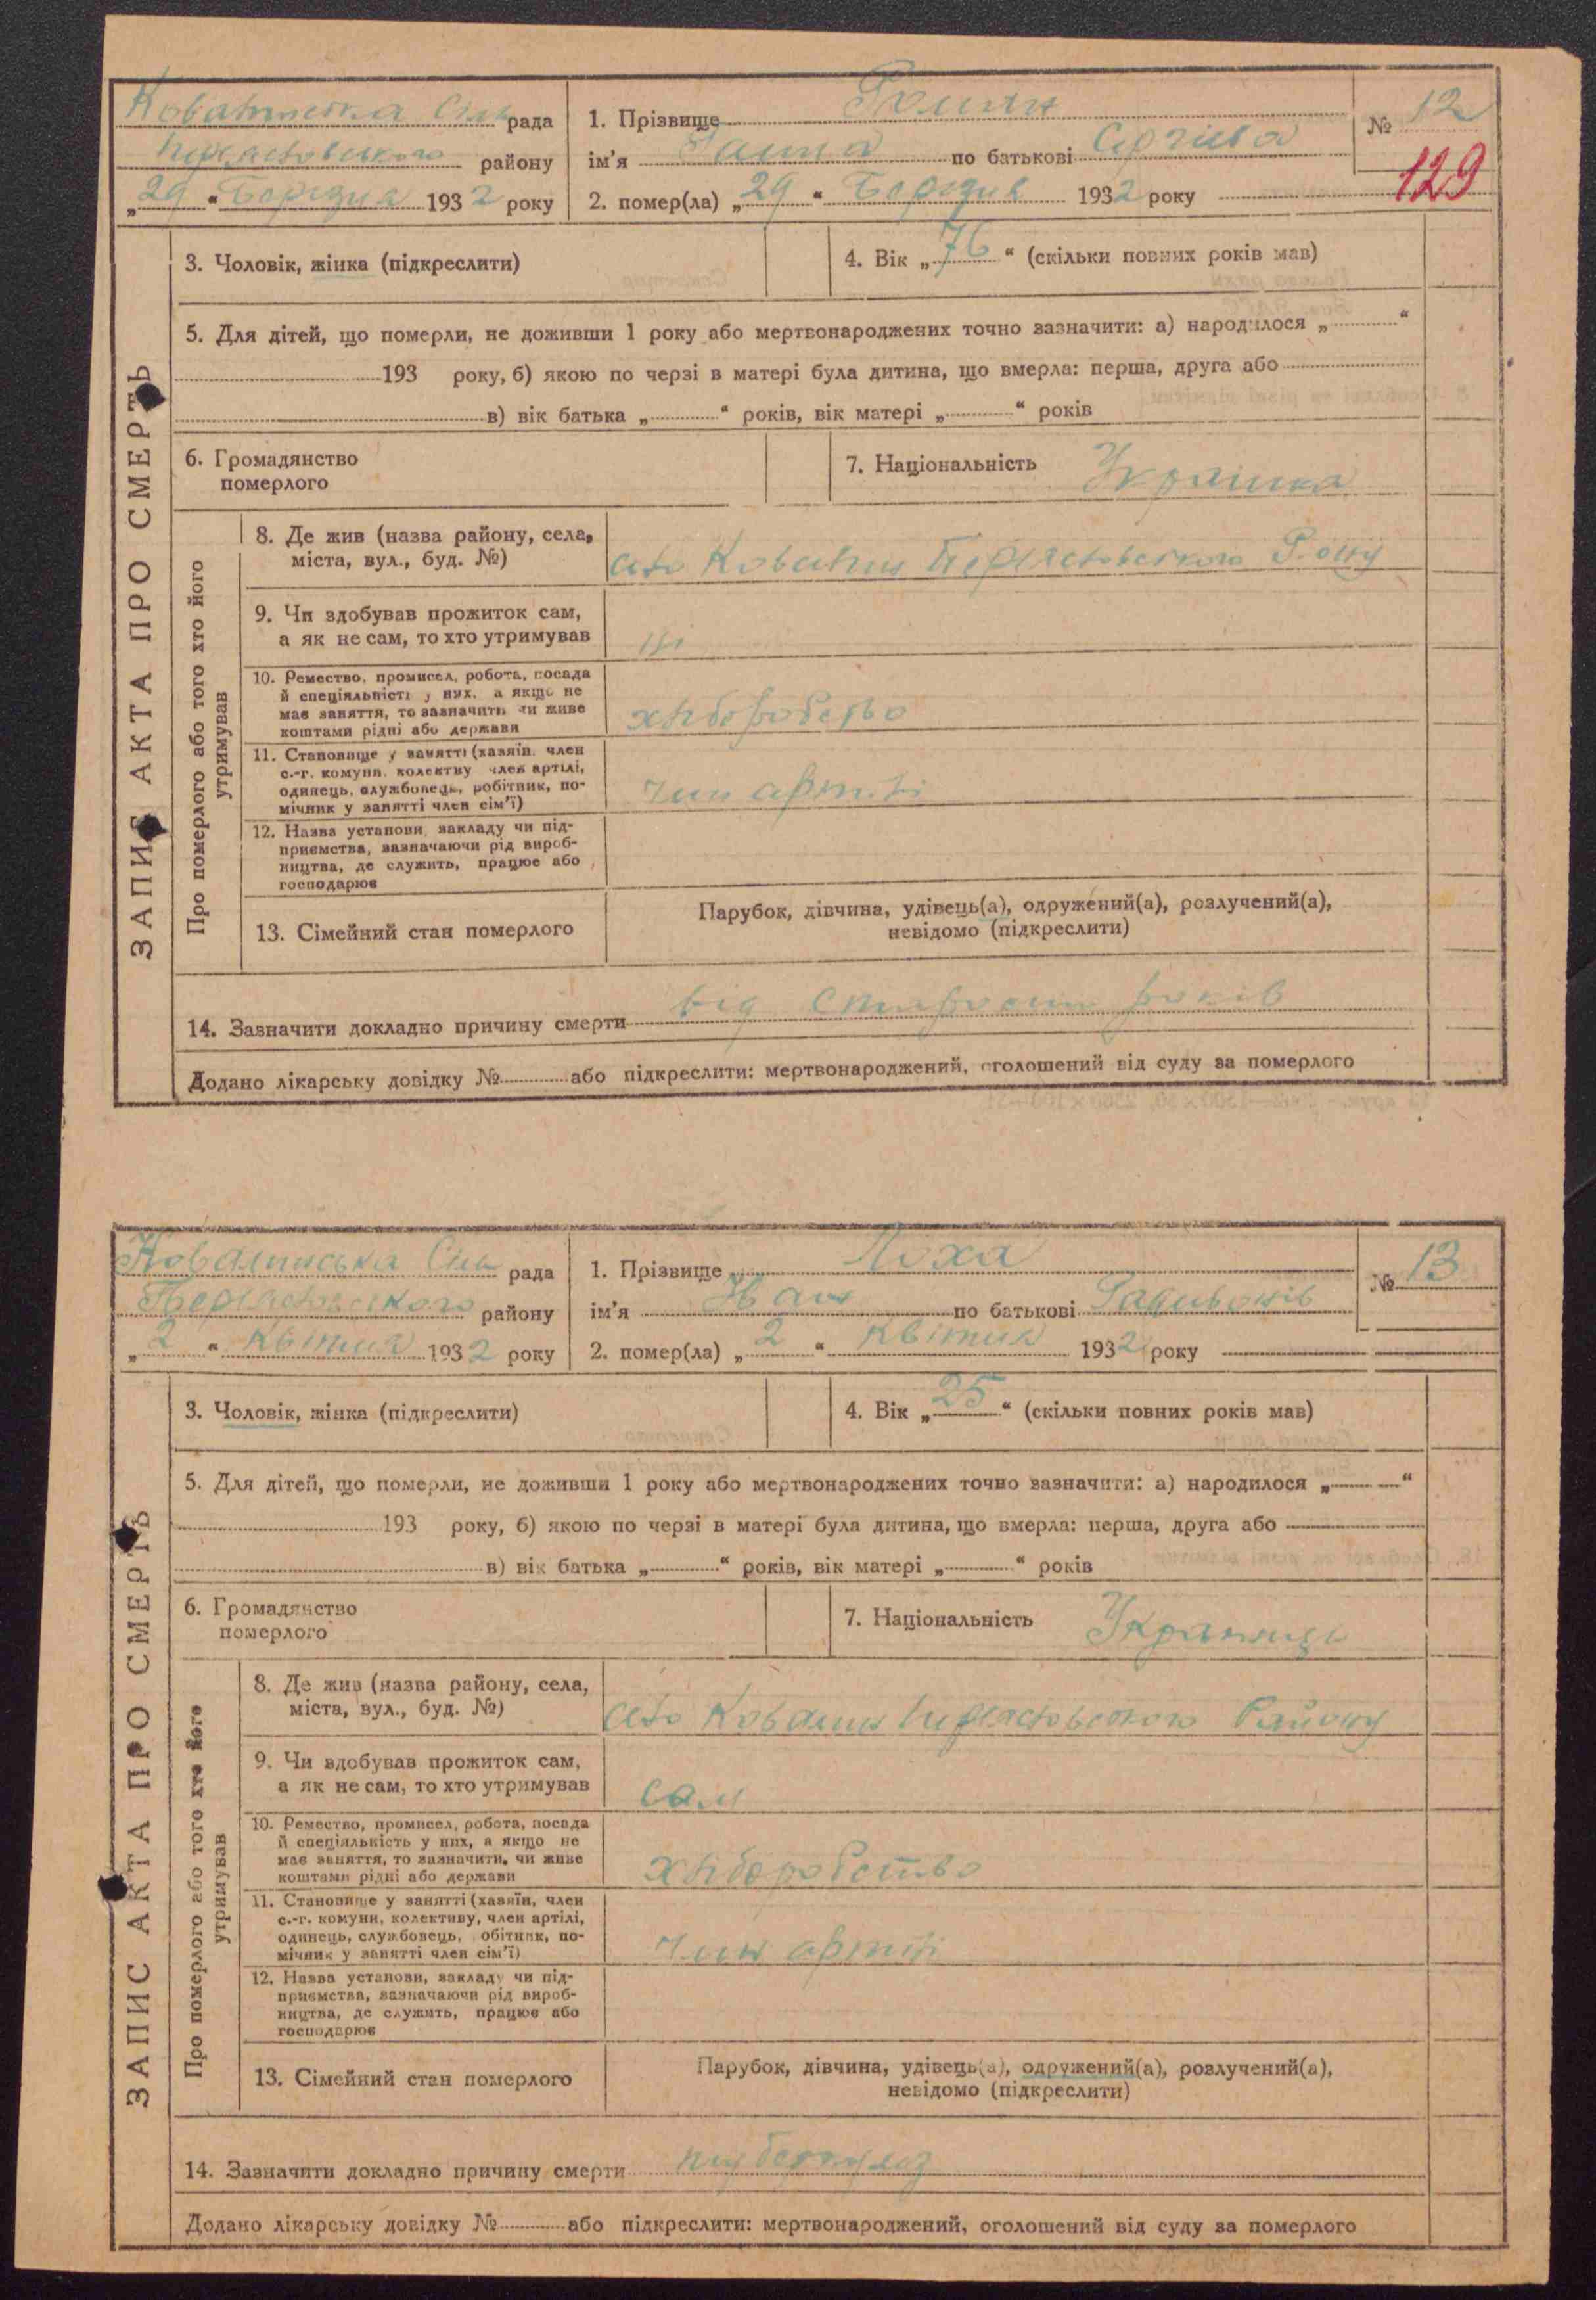 Ковалинська Сіль рада
Переяславського району
„29“ Березня 1932 року
1. Прізвище
ім’я Ганна по батькові Сергієва
2. помер(ла) „29“ Березня 1932 року
№ 12
129
ЗАПИС АКТА ПРО СМЕРТЬ
3. Чоловік, жінка (підкреслити)
4. Вік „76“ (скільки повних років мав)
5. Для дітей, що померли, не доживши 1 року або мертвонароджених точно зазначити: а) народилося „ “
193 року, б) якою по черзі в матері була дитина, що вмерла: перша, друга або
в) вік батька „ “ років, вік матері „ “ років
6. Громадянство
померлого
7. Національність Українка
Про померлого або того хто його
утримував
8. Де жив (назва району, села,
міста, вул., буд. №)
село Ковалин Переяславського Р-ону
9. Чи здобував прожиток сам,
а як не сам, то хто утримував
10. Ремество, промисел, робота, посада
й спеціяльність у них, а якщо не
має заняття, то зазначити чи живе
коштами рідні або держави
хліборобство
11. Становище у занятті (хазяїн, член
с.-г. комуни, колективу член артілі,
одинець, службовець, робітник, по-
мічник у занятті член сім’ї)
член артілі
12. Назва установи, закладу чи під-
приємства, зазначаючи рід вироб-
ництва, де служить, працює або
господарює
13. Сімейний стан померлого
Парубок, дівчина, удівець(а), одружений(а), розлучений(а),
невідомо (підкреслити)
14. Зазначити докладно причину смерти від старости років
Додано лікарську довідку № або підкреслити: мертвонароджений, оголошений від суду за померлого
Ковалинська Сіль рада
Переяславського району
„2“ Квітня 1932 року
1. Прізвище Лоха
ім’я Іван по батькові
2. помер(ла) „2“ Квітня 1932 року
№ 13
ЗАПИС АКТА ПРО СМЕРТЬ
3. Чоловік, жінка (підкреслити)
4. Вік „25“ (скільки повних років мав)
5. Для дітей, що померли, не доживши 1 року або мертвонароджених точно зазначити: а) народилося „ “
193 року, б) якою по черзі в матері була дитина, що вмерла: перша, друга або
в) вік батька „ “ років, вік матері „ “ років
6. Громадянство
померлого
7. Національність Українець
Про померлого або того хто його
утримував
8. Де жив (назва району, села,
міста, вул., буд. №)
село Ковалин Переяславського Району
9. Чи здобував прожиток сам,
а як не сам, то хто утримував
сам
10. Ремество, промисел, робота, посада
й спеціяльність у них, а якщо не
має заняття, то зазначити, чи живе
коштами рідні або держави
хліборобство
11. Становище у занятті (хазяїн, член
с.-г. комуни, колективу, член артілі,
одинець, службовець, робітник, по-
мічник у занятті член сім’ї)
член артілі
12. Назва установи, закладу чи під-
приємства, зазначаючи рід вироб-
ництва, де служить, працює або
господарює
13. Сімейний стан померлого
Парубок, дівчина, удівець(а), одружений(а), розлучений(а),
невідомо (підкреслити)
14. Зазначити докладно причину смерти туберкулоз
Додано лікарську довідку № або підкреслити: мертвонароджений, оголошений від суду за померлого